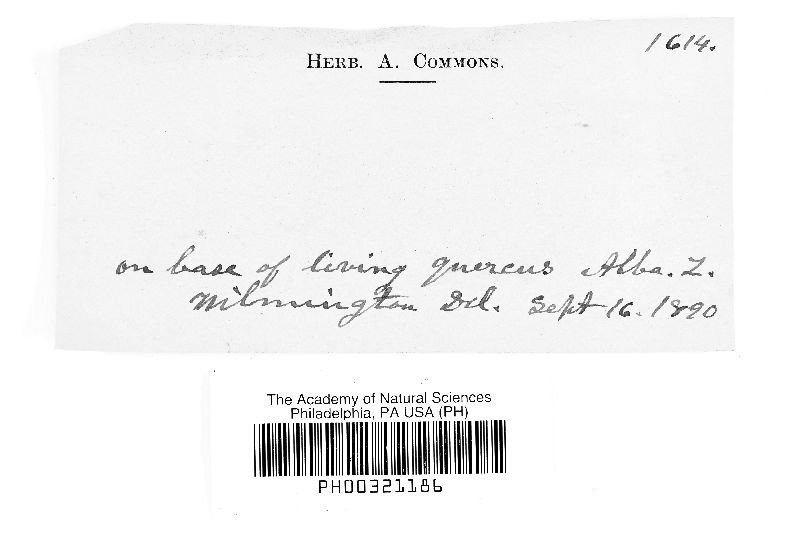 1614.
HERB. A. COMMONS.
on base of living quercus Alba. L.
Wilmington Del. Sept 16. 1890
The Academy of Natural Sciences
Philadelphia, PA USA (PH)
PH00321186